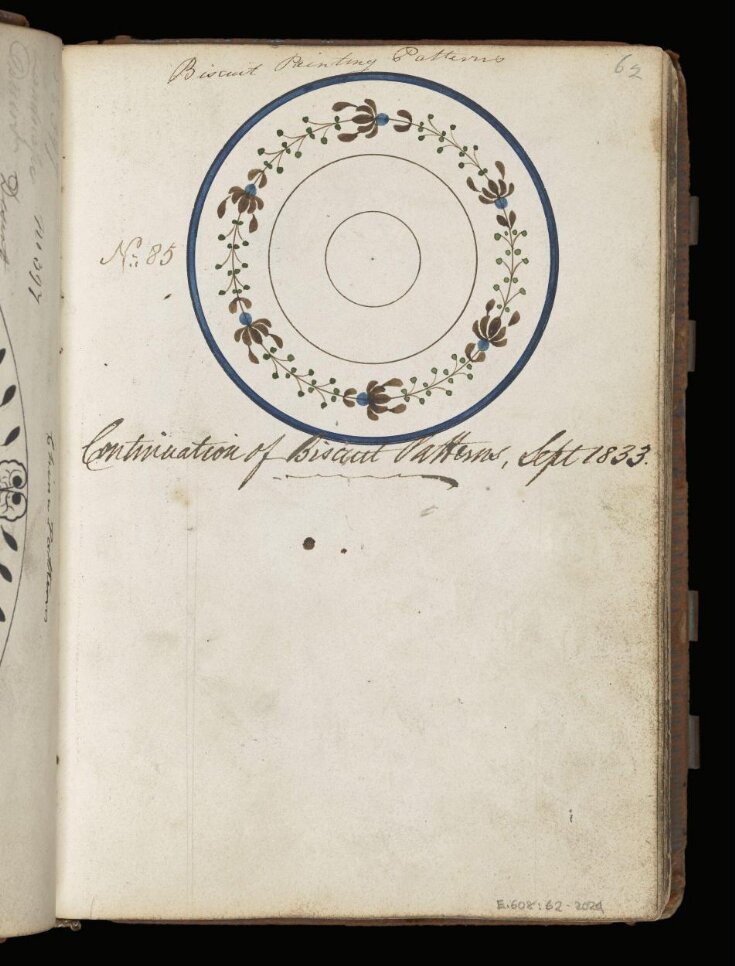 Biscuit Painting Patterns
62
No: 85
Continuation of Biscuit Patterns, Sept 1833.
E.608:62-2024